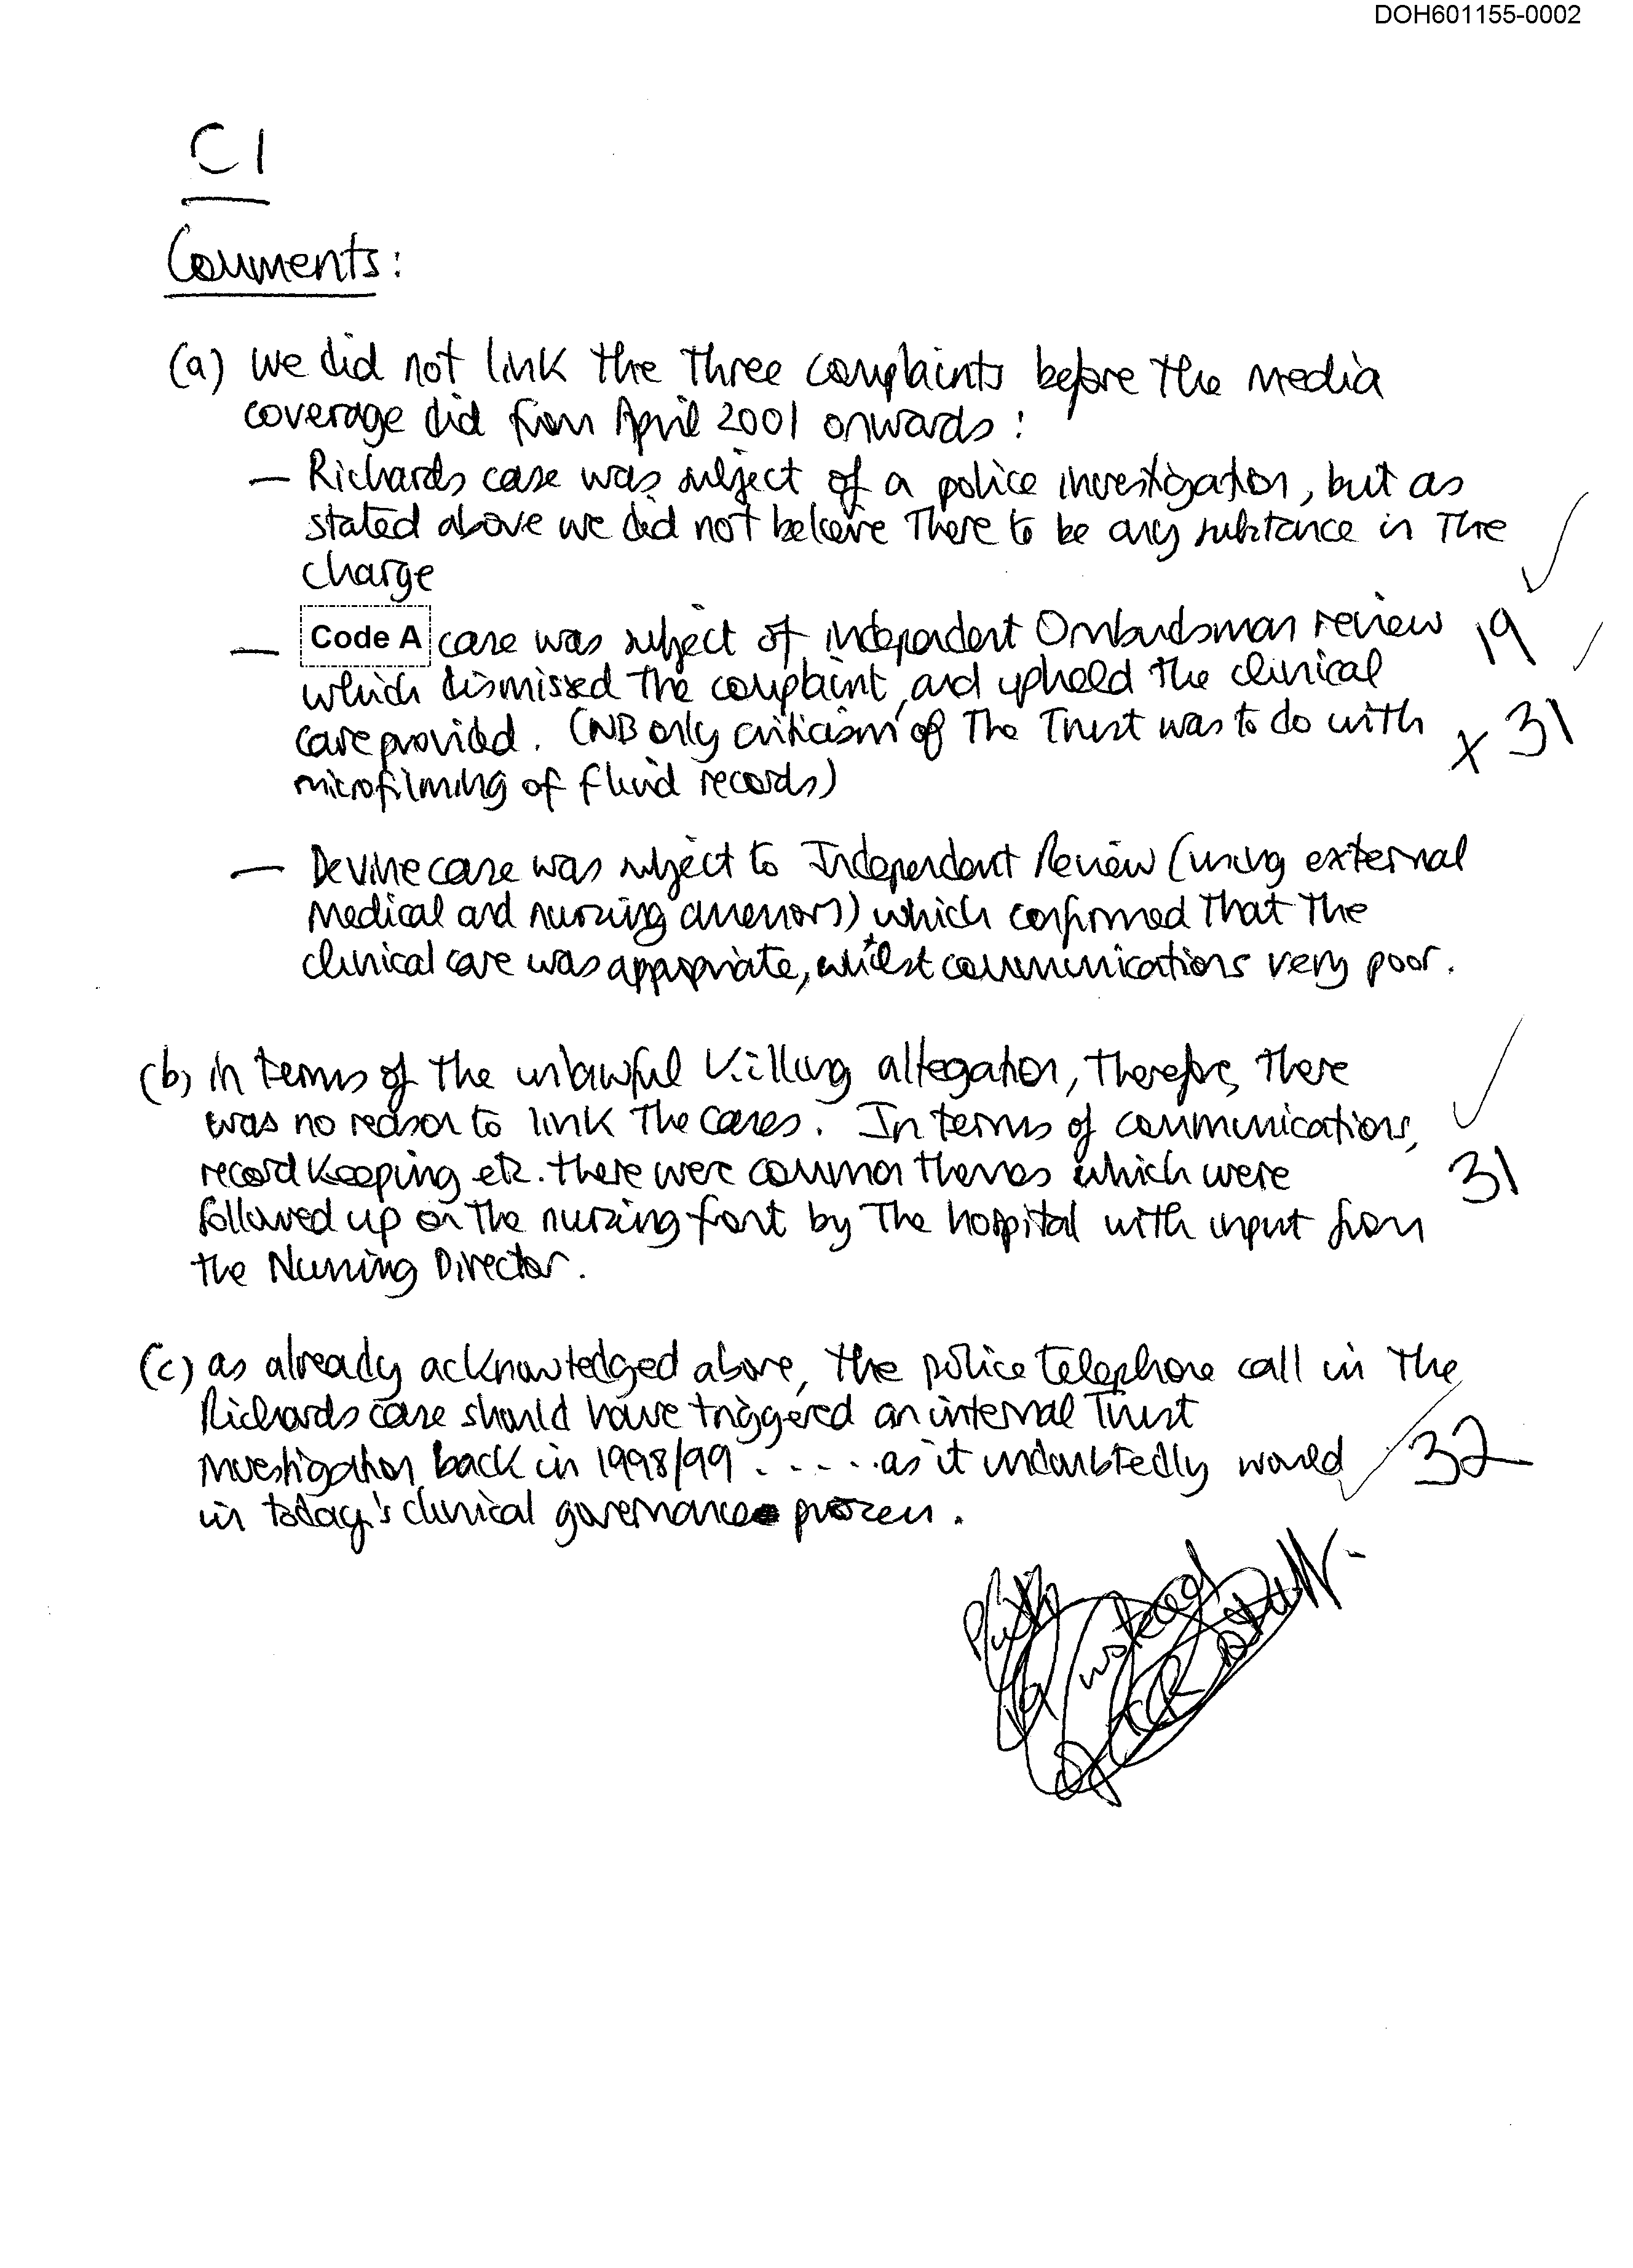 DOH601155-0002
C1
Comments:
(a) we did not link the three complaints before the media
coverage did from April 2001 onwards:
— Richards case was subject of a police investigation, but as
stated above we did not beleive there to be any substance in the
charge
— Code A case was subject of independent Ombudsman review 19
which dismissed the complaint, and upheld the clinical
care provided. (NB only criticism of the Trust was to do with x 31
microfilming of fluid records)
— Devine case was subject to Independent Review (using external
medical and nursing assessors) which confirmed that the
clinical care was appropriate, whilst communications very poor.
(b) in terms of the unlawful killing allegation, therefore, there
was no reason to link the cases. In terms of communications,
record keeping etc. there were common themes which were 31
followed up on the nursing front by the hospital with input from
the Nursing Director.
(c) as already acknowledged above, the police telephone call in the
Richards case should have triggered an internal Trust
investigation back in 1998/99 ..... as it undoubtedly would 32
in today's clinical governance process.